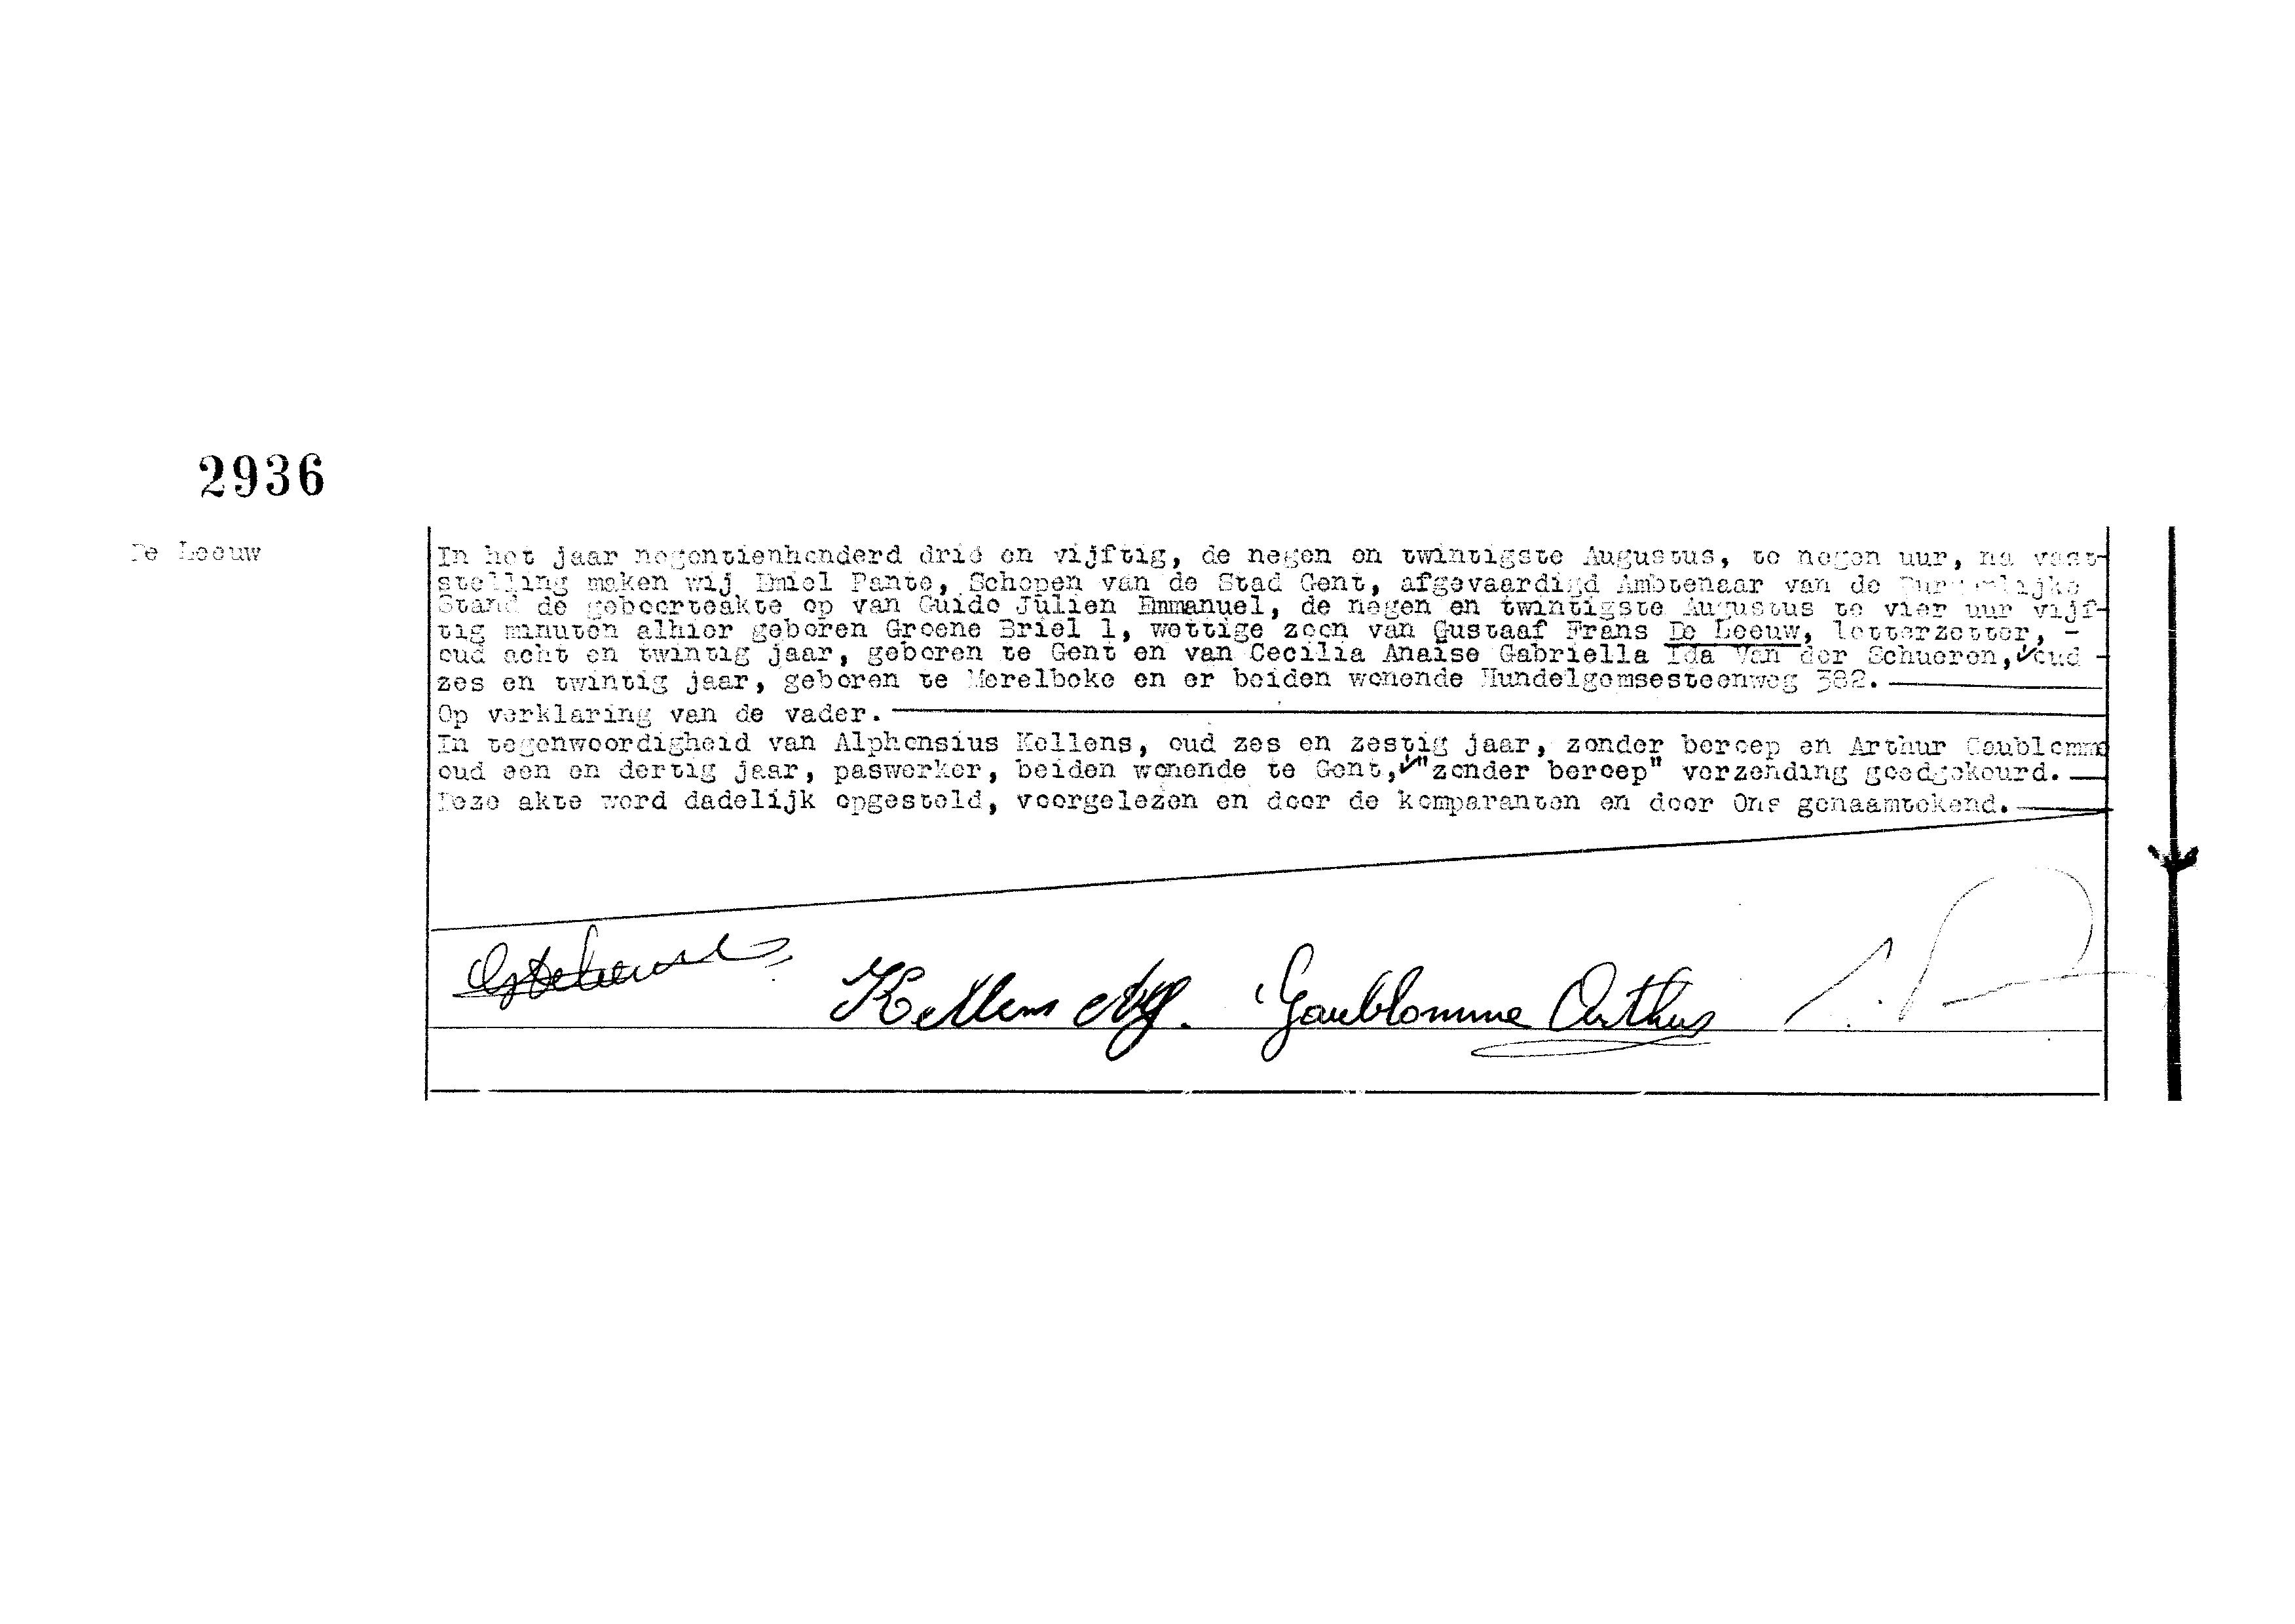 2936
De Leeuw
In het jaar negentienhonderd drie en vijftig, de negen en twintigste Augustus, te negen uur, na vast-
stelling maken wij Emiel Pante, Schepen van de Stad Gent, afgevaardigd Ambtenaar van de Burgerlijke
Stand de geboorteakte op van Guido Julien Emmanuel, de negen en twintigste Augustus te vier uur vijf-
tig minuten alhier geboren Groene Briel 1, wettige zoon van Gustaaf Frans De Leeuw, letterzetter, -
oud acht en twintig jaar, geboren te Gent en van Cecilia Anaise Gabriella Ida Van der Schueren,✓oud -
zes en twintig jaar, geboren te Merelbeke en er beiden wonende Hundelgemsesteenweg 382.
Op verklaring van de vader.
In tegenwoordigheid van Alphonsius Kellens, oud zes en zestig jaar, zonder beroep en Arthur Gaublomme
oud een en dertig jaar, paswerker, beiden wonende te Gent,✓"zonder beroep" verzending goedgekeurd.
Deze akte werd dadelijk opgesteld, voorgelezen en door de komparanten en door Ons genaamtekend.
Kellens Alf. Gaublomme Arthur